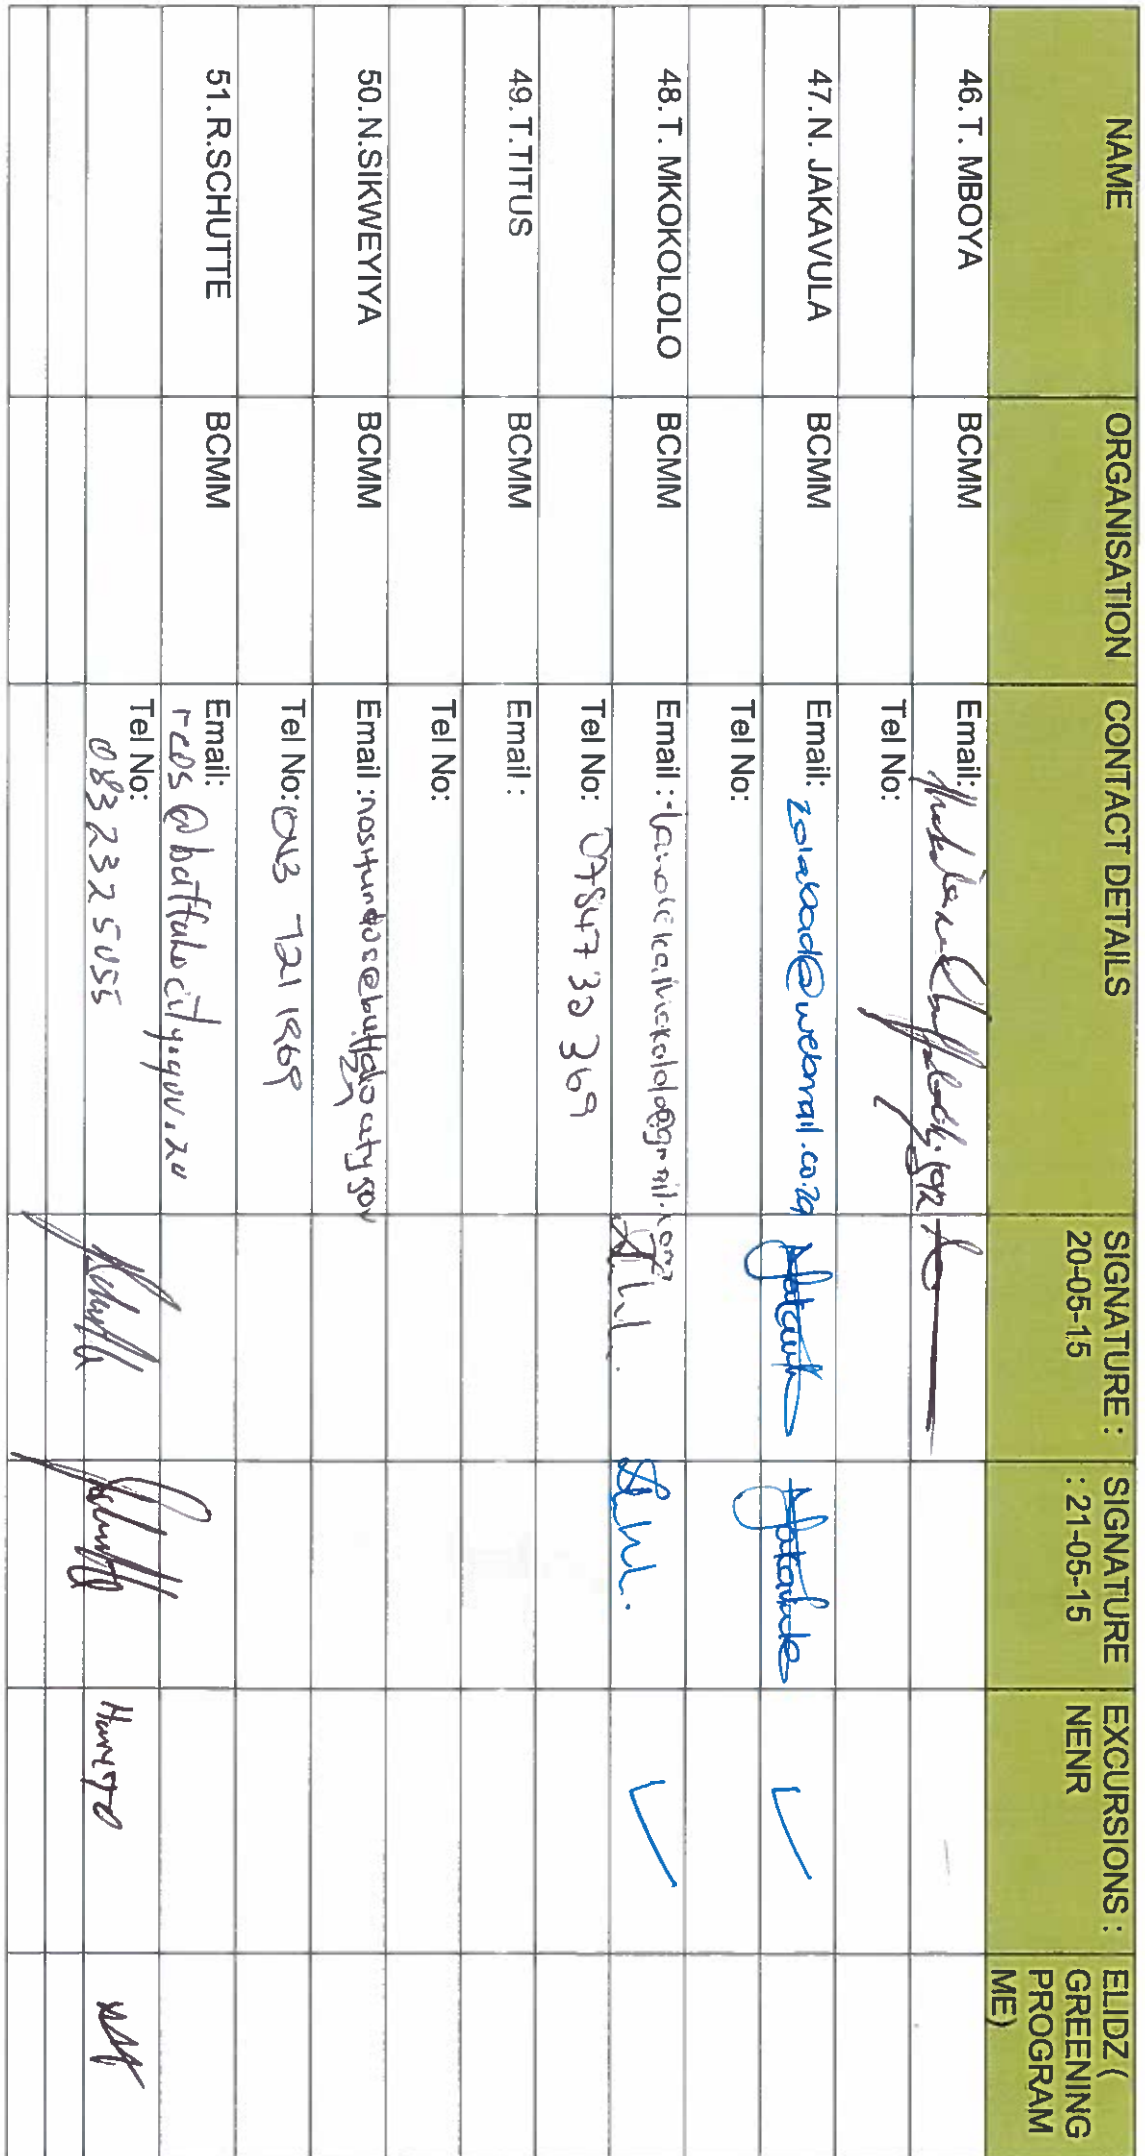 NAME
ORGANISATION
CONTACT DETAILS
SIGNATURE :
20-05-15
SIGNATURE
: 21-05-15
EXCURSIONS :
NENR
ELIDZ (
GREENING
PROGRAM
ME)
46.T. MBOYA
BCMM
Email:
Tel No:
47.N. JAKAVULA
BCMM
Email: zolabad@webmail.co.za
Tel No:
48.T. MKOKOLOLO
BCMM
Email :
Tel No: 0784730369
49.T.TITUS
BCMM
Email :
Tel No:
50.N.SIKWEYIYA
BCMM
Email :
Tel No: 043 721 1969
51.R.SCHUTTE
BCMM
Email:
Tel No:
083 232 5055